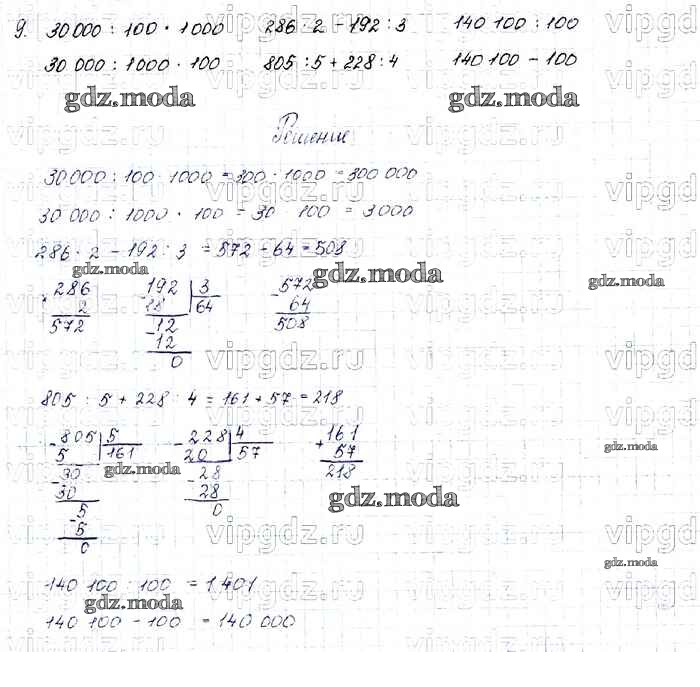 9. 30 000 : 100 · 1000 286 · 2 - 192 : 3 140 100 : 100
30 000 : 1000 · 100 805 : 5 + 228 : 4 140 100 - 100
gdz.moda gdz.moda gdz.moda
Решение
30 000 : 100 · 1000 = 300 · 1000 = 300 000
30 000 : 1000 · 100 = 30 · 100 = 3000
286 · 2 - 192 : 3 = 572 - 64 = 508
gdz.moda gdz.moda gdz.moda
286 192 3 572
2 18 64 64
572 12 508
12
0
805 : 5 + 228 : 4 = 161 + 57 = 218
- 805 5 - 228 4 + 161
5 161 20 57 57
- 30 - 28 218
30 28
- 5 0
5
0
gdz.moda gdz.moda gdz.moda
140 100 : 100 = 1401
gdz.moda gdz.moda
140 100 - 100 = 140 000
vipgdz.ru vipgdz.ru vipgd